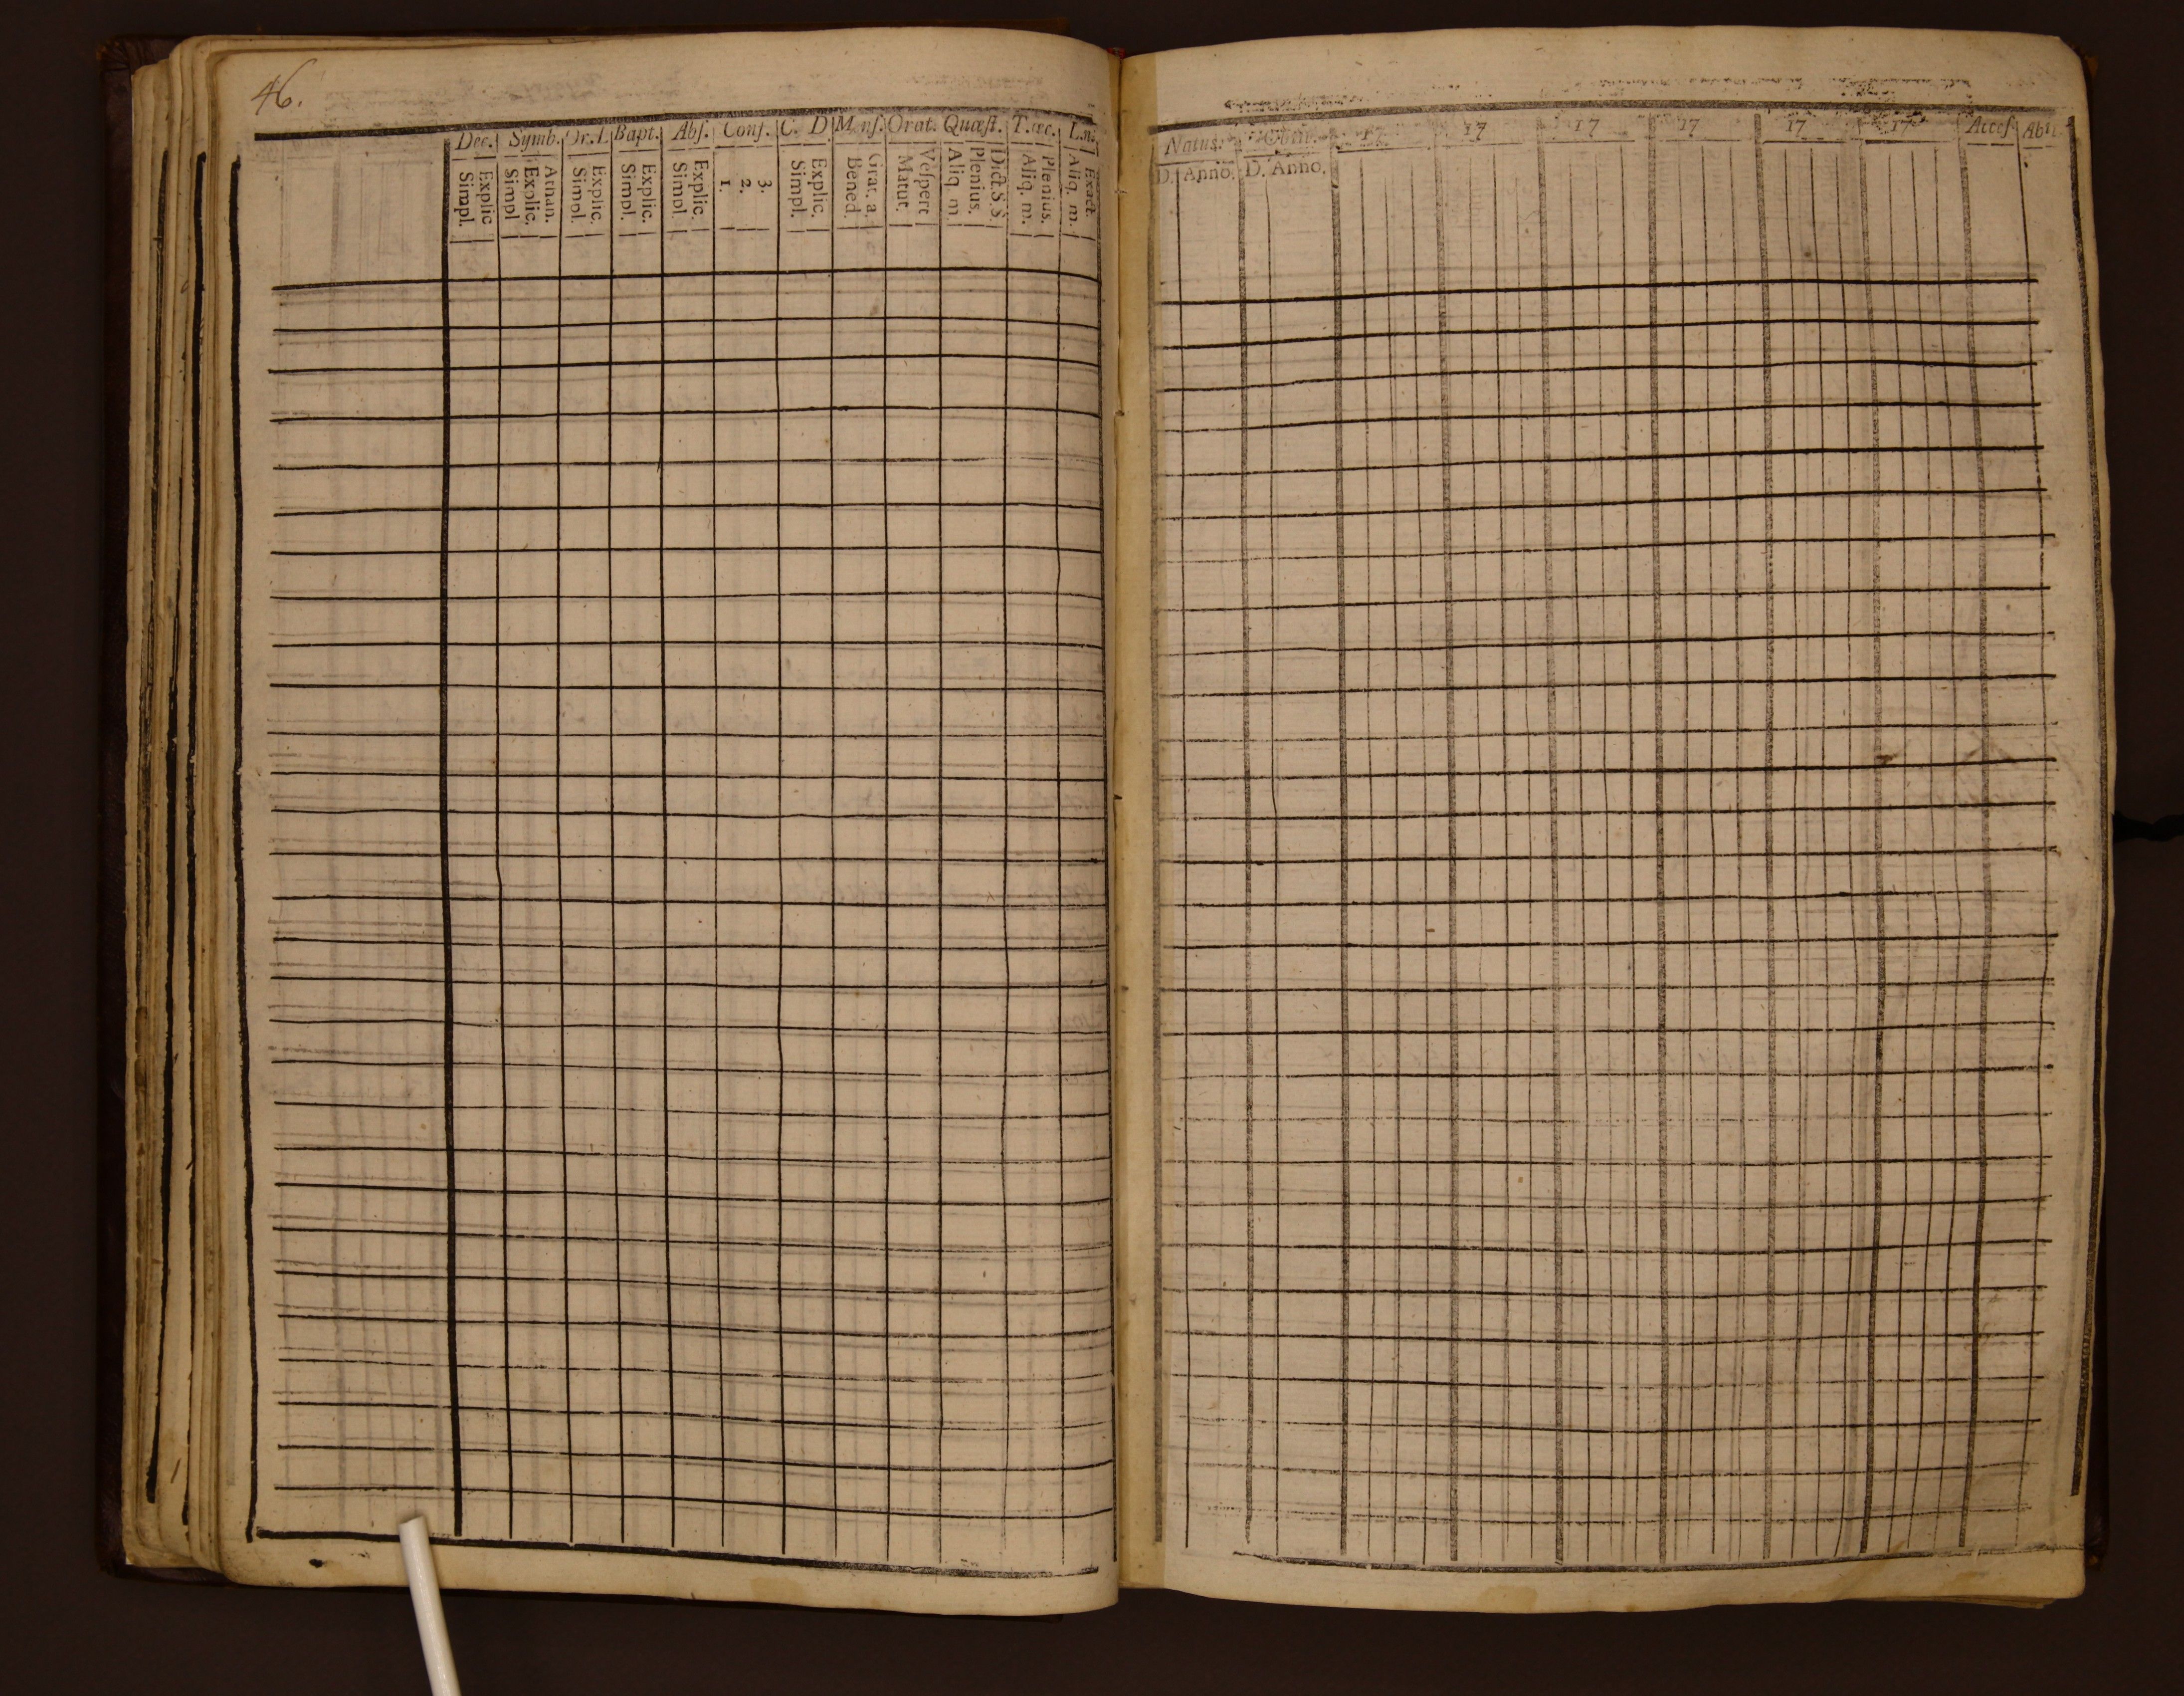 46.
Dec. Symb. Or. D. Bapt. Abſ. Conf. C. D. Menſ. Orat. Quæſt. T. œc.
Explic. Simpl.
Athan. Explic. Simpl.
Explic. Simpl.
Explic. Simpl.
Explic. Simpl.
3. 2. 1.
Explic. Simpl.
Grat. a. Bened.
Veſpert. Matut.
Dict. S.S. Plenius. Aliq. m.
Plenius. Aliq. m.
Exact. Aliq. m.
Natus. 17 17 17 17 17 17 Acceſ. Abiit
D. Anno. D. Anno.